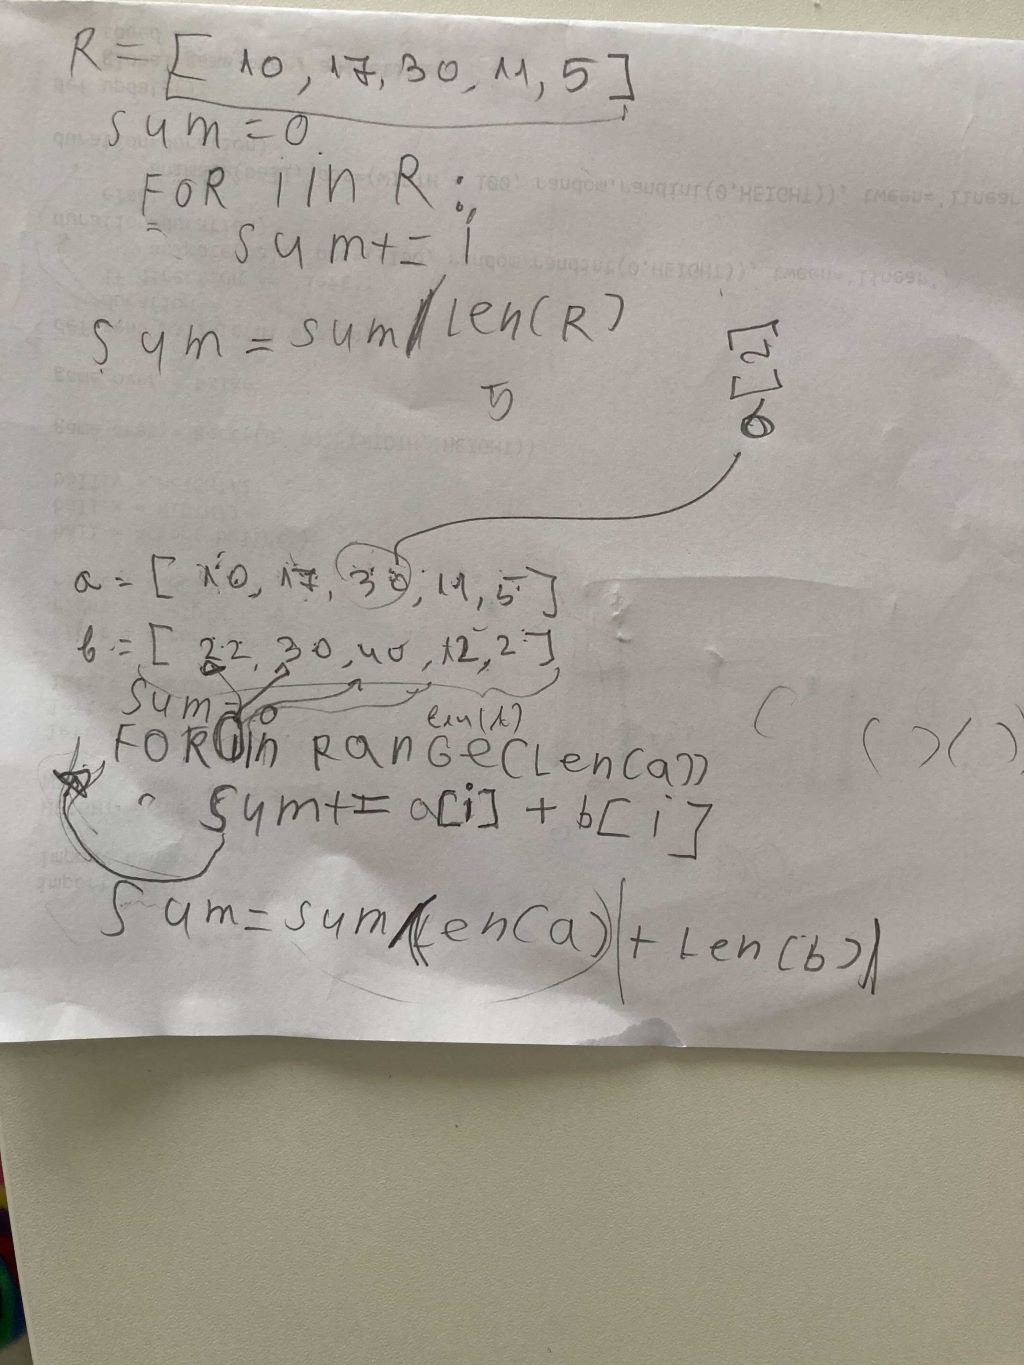 R = [10, 17, 30, 11, 5]
sum = 0
FOR i in R:
sum += i
sum = sum/len(R)
5
a[2]
a = [10, 17, 30, 11, 5]
b = [22, 30, 40, 12, 2]
sum = 0
len(
FOR i in RanGe(Len(a))
sum += a[i] + b[i]
sum = sum/(Len(a) + Len(b))
( ) ( )